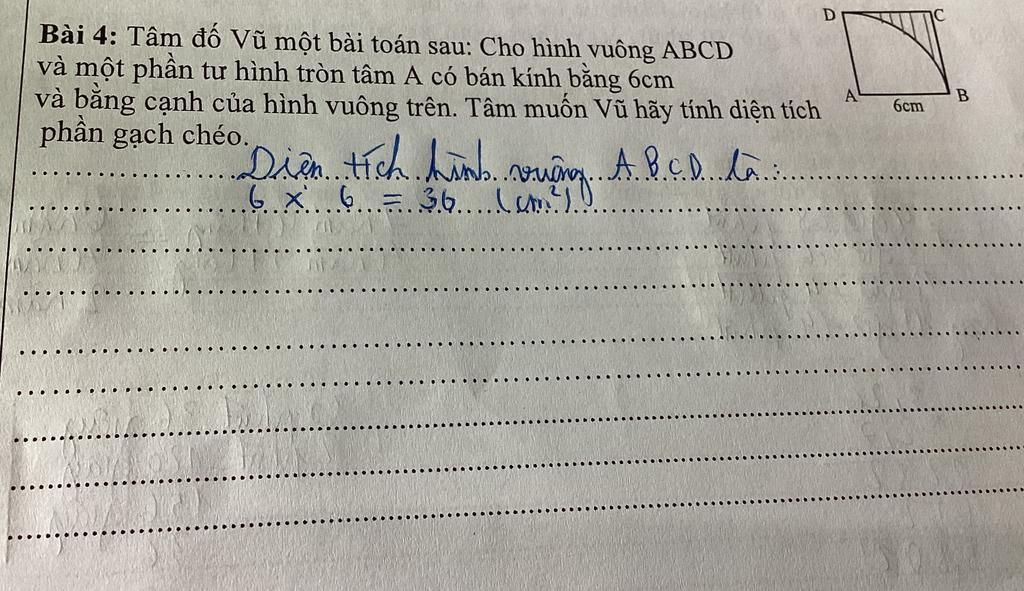 Bài 4: Tâm đố Vũ một bài toán sau: Cho hình vuông ABCD
và một phần tư hình tròn tâm A có bán kính bằng 6cm
và bằng cạnh của hình vuông trên. Tâm muốn Vũ hãy tính diện tích
phần gạch chéo.
D C
A B
6cm
Diện tích hình vuông ABCD là:
6 x 6 = 36 (cm²)